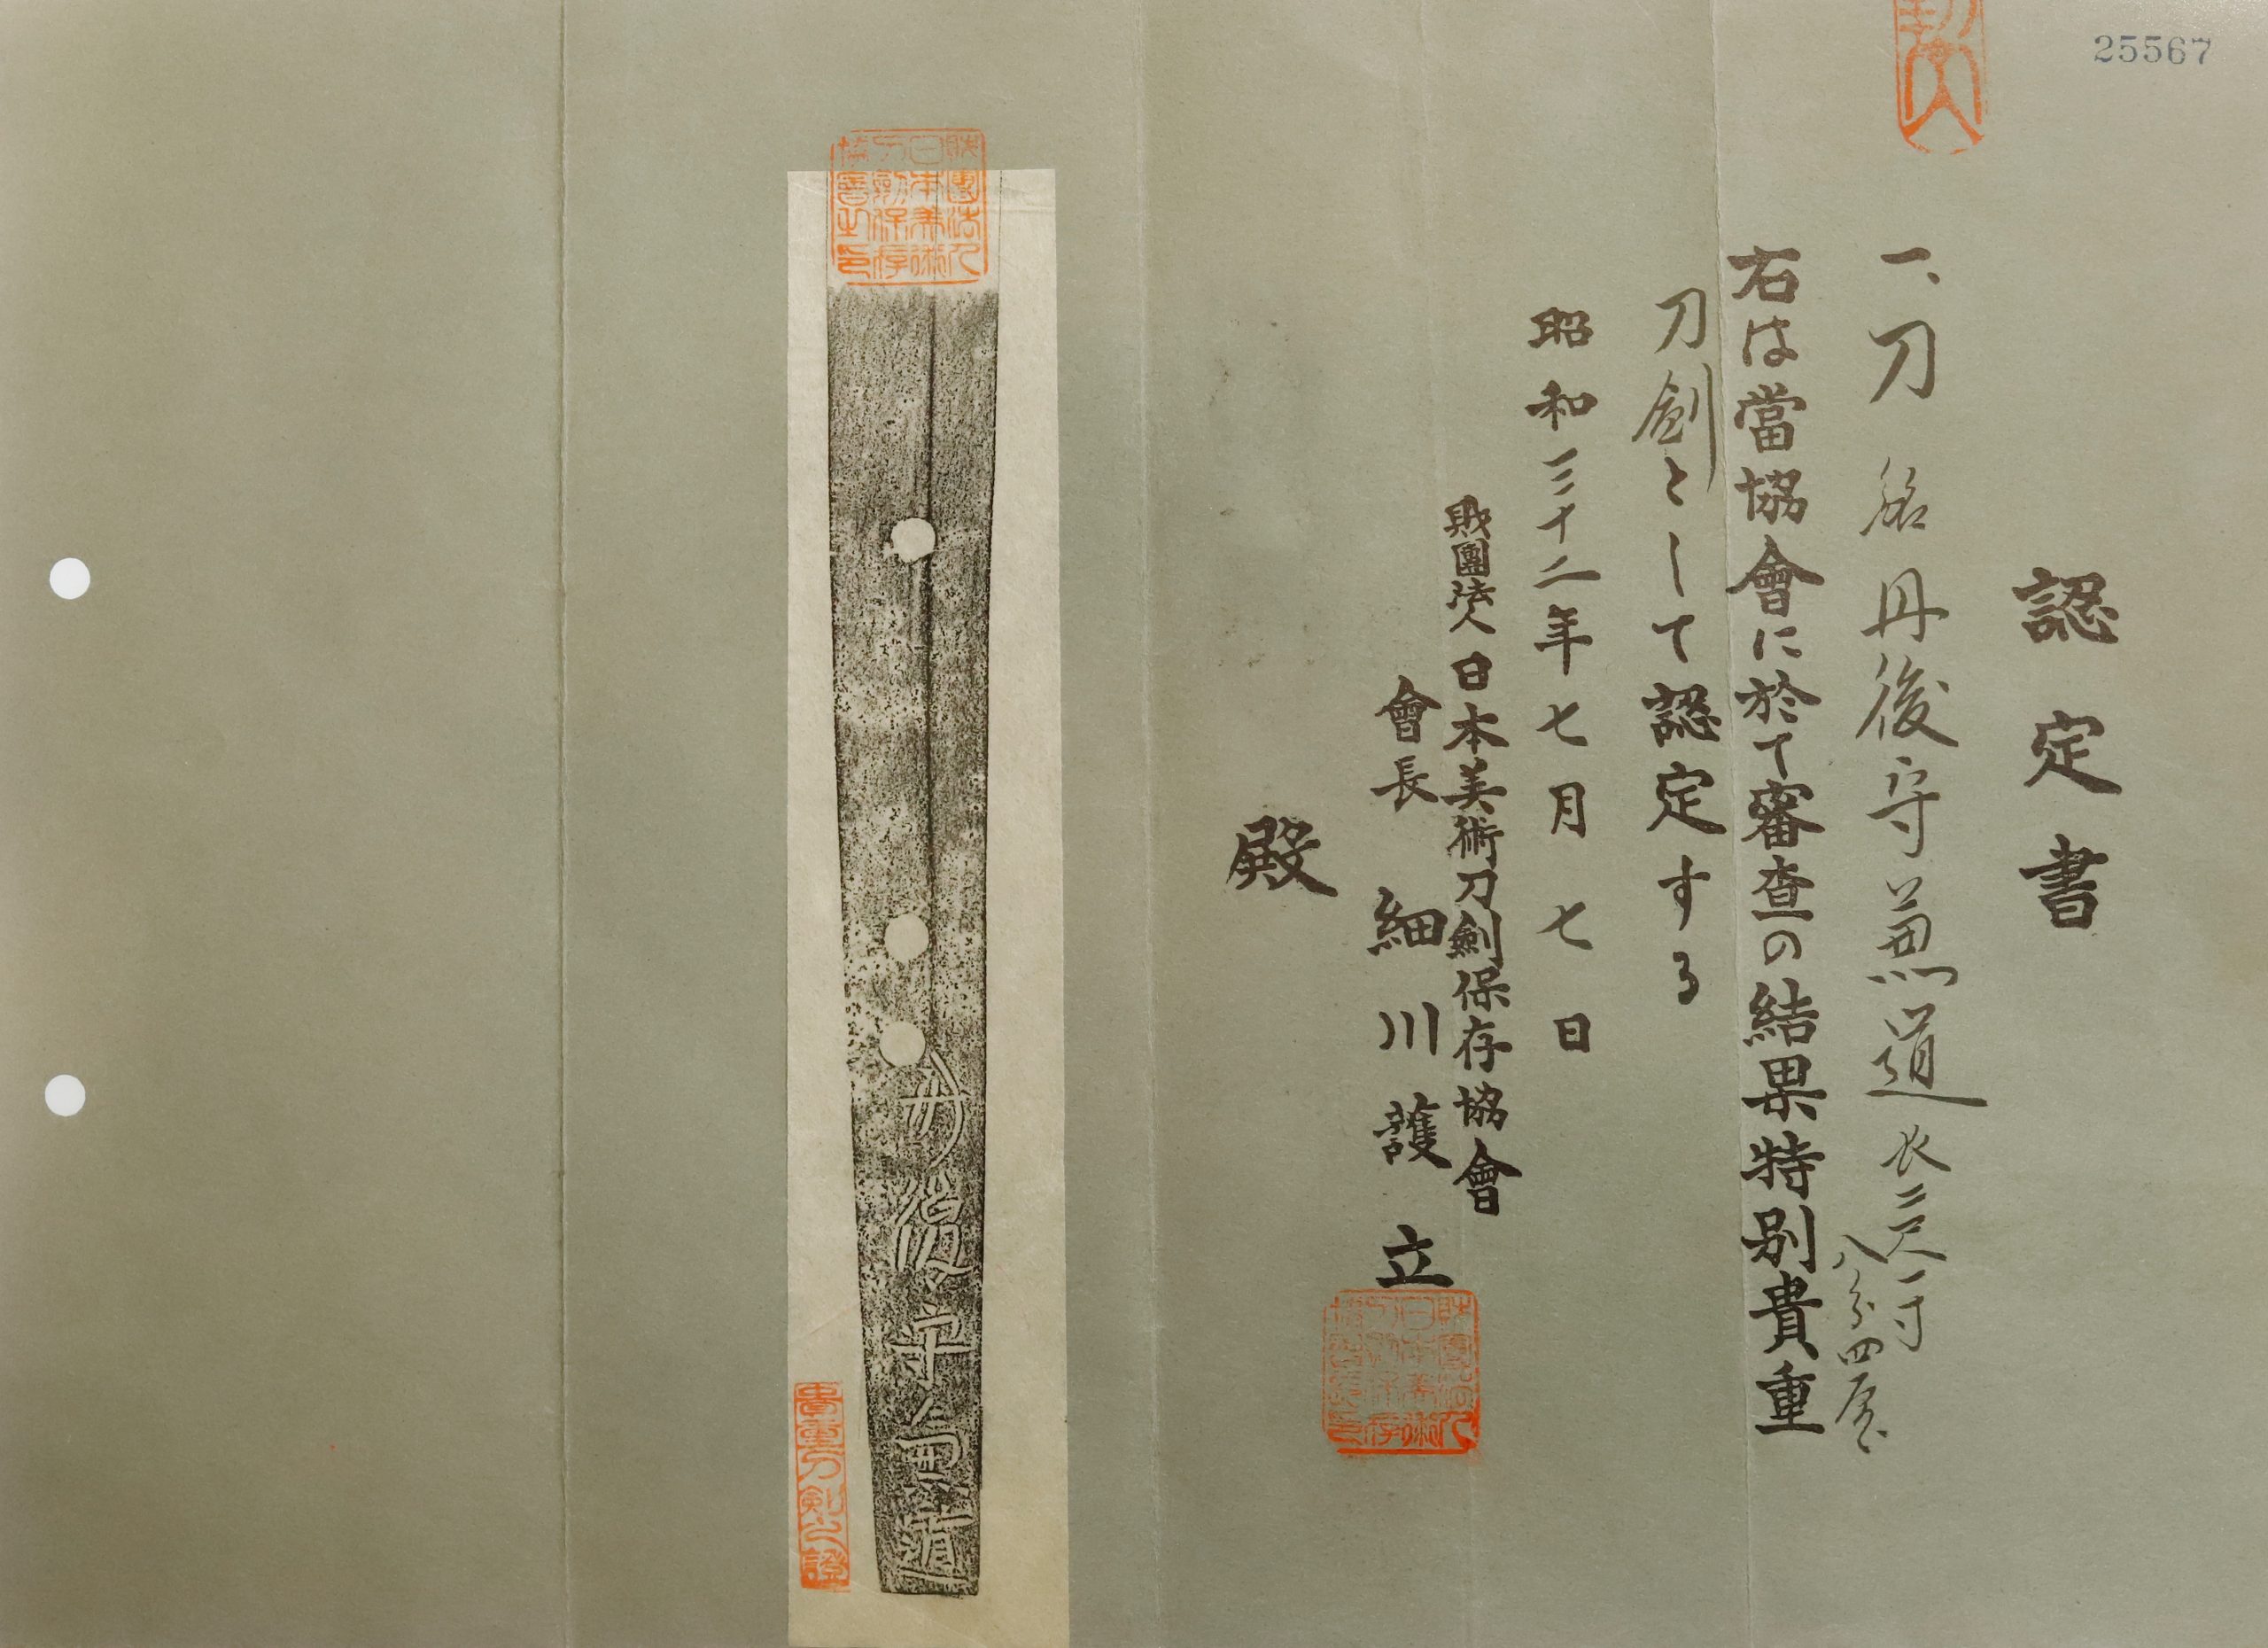 25567
認定書
一、刀 銘 丹後守兼道 長二尺一寸
八分四厘
右は當協會に於て審査の結果特別貴重
刀劍として認定する
昭和三十二年七月七日
財團法人日本美術刀劍保存協會
會長 細川護立
殿
財團法人
日本美術
刀劍保存
協會之印
丹後守兼道
貴重刀剣之證